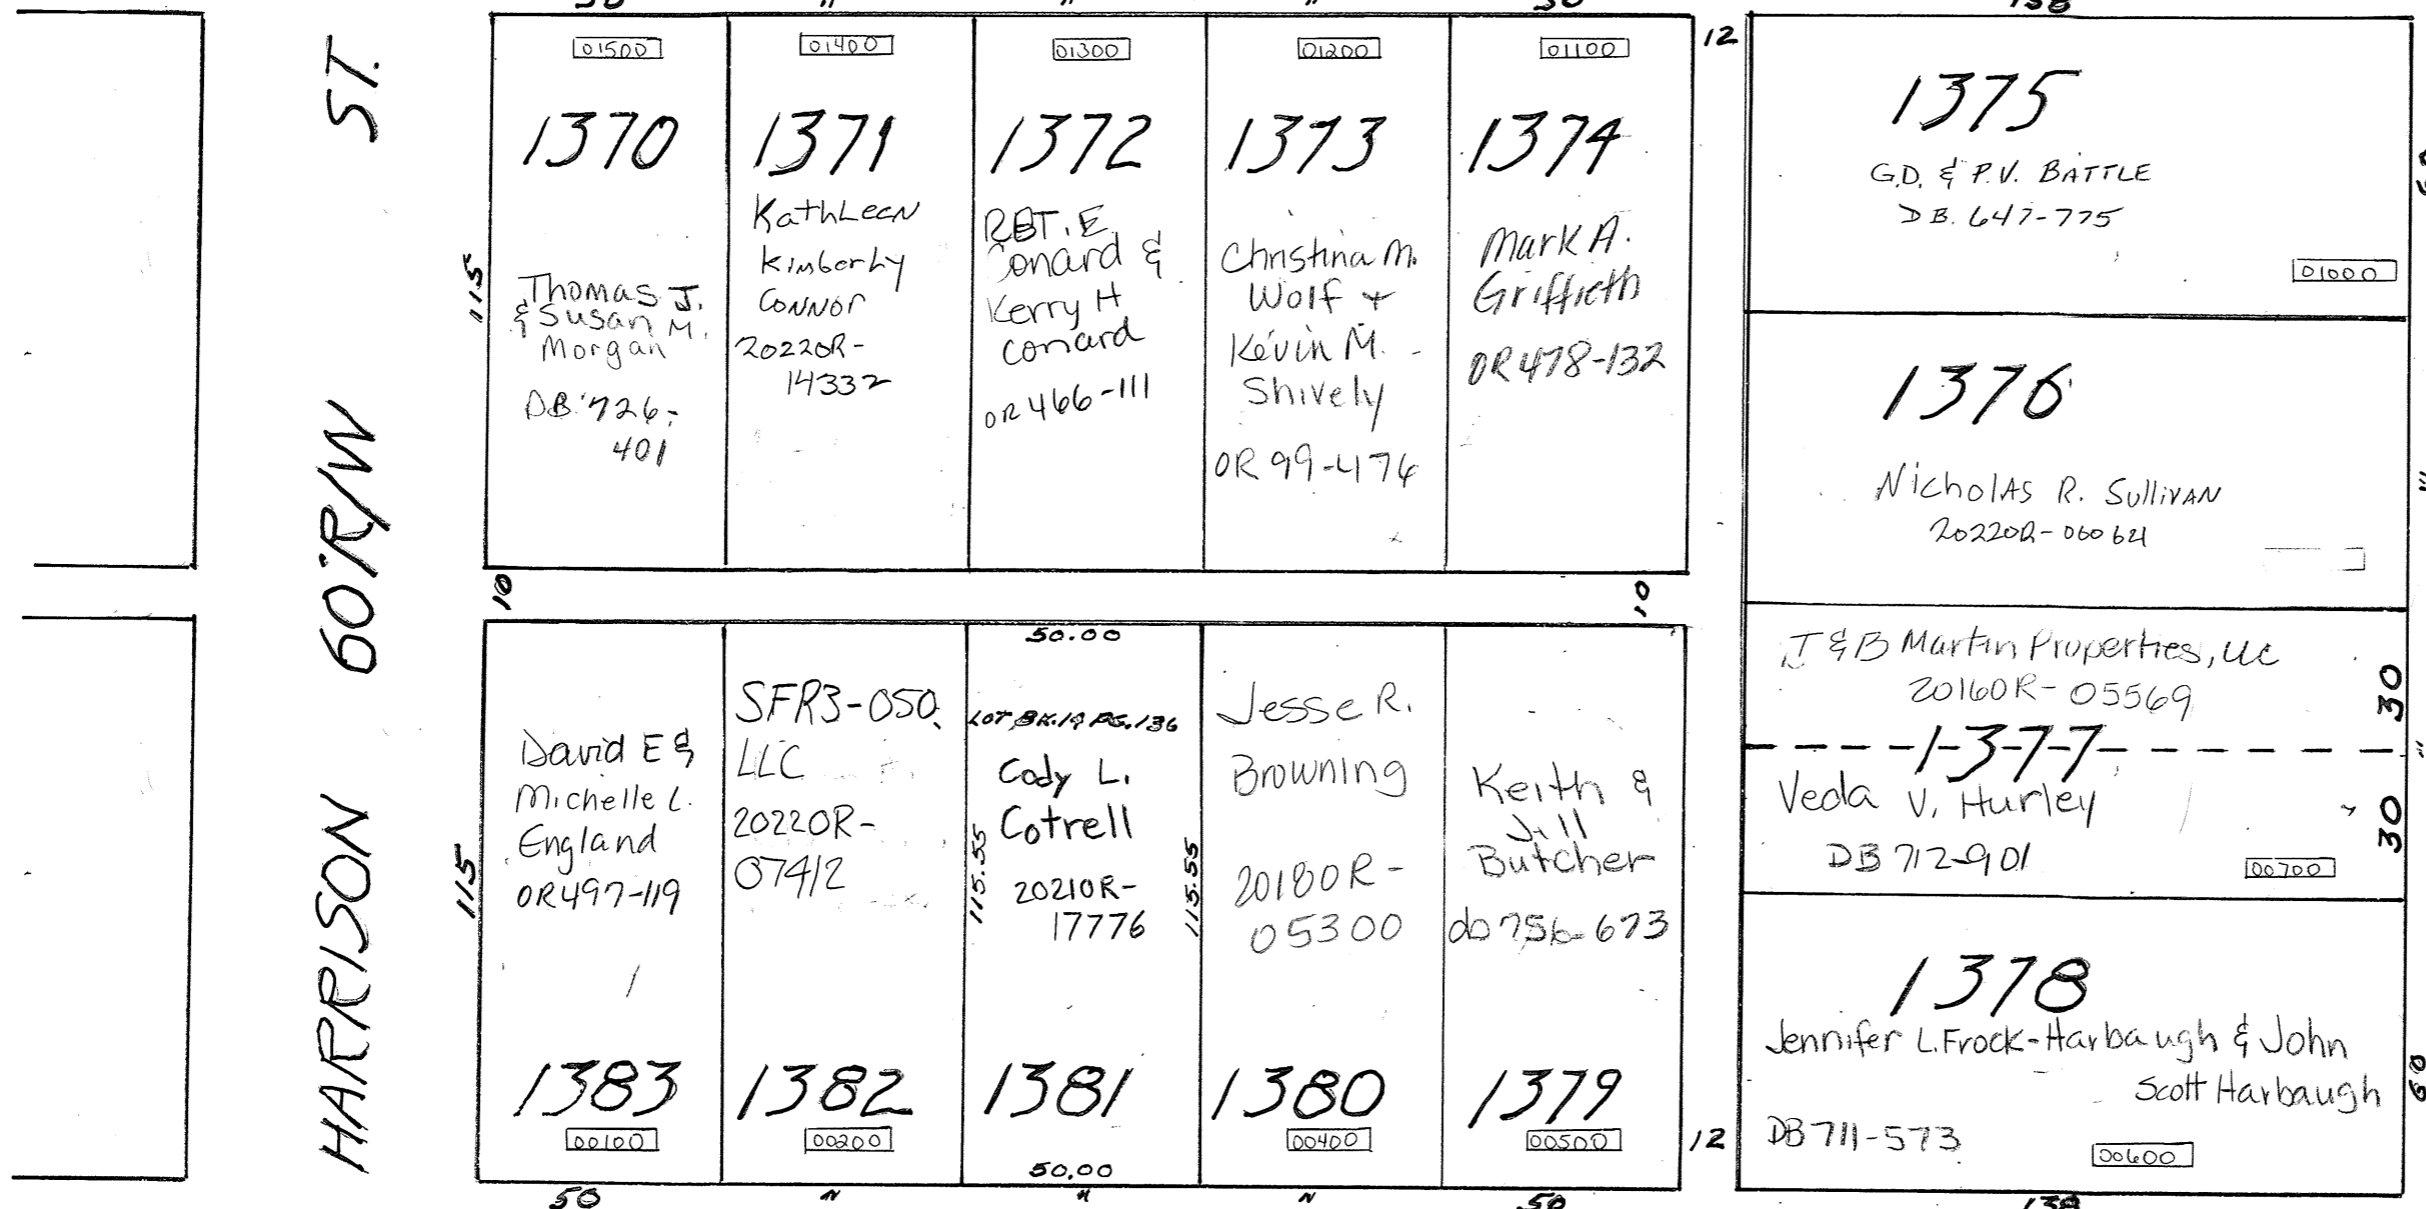 HARRISON 60'R/W ST.
50 " " " 50
01500
1370
Thomas J.
& Susan M.
Morgan
DB 726-
401
115
01400
1371
Kathleen
Kimberly
Connor
20220R-
14332
01300
1372
RBT. E.
Conard &
Kerry H
Conard
OR 466-111
01200
1373
Christina M.
Wolf +
Kevin M.
Shively
OR 99-476
01100
1374
Mark A.
Griffieth
OR 478-132
12
138
1375
G.D. & P.V. BATTLE
DB. 647-775
01000
60
1376
Nicholas R. Sullivan
20220R-
"
10
10
J & B Martin Properties, LLC
20160R-05569
30
1-3-7-7
"
Veda V. Hurley
DB 712-901
30
00700
1378
Jennifer L. Frock-Harbaugh & John
Scott Harbaugh
DB 711-573
00600
60
138
115
David E &
Michelle L.
England
OR497-119
1383
00100
50
SFR3-050,
LLC
20220R-
07412
1382
00200
"
50.00
LOT BK.19 PG.136
Cody L.
Cotrell
20210R-
17776
115.55
115.55
1381
50.00
"
Jesse R.
Browning
20180R-
05300
1380
00400
"
Keith &
Jill
Butcher
db 756-673
1379
00500
50
12